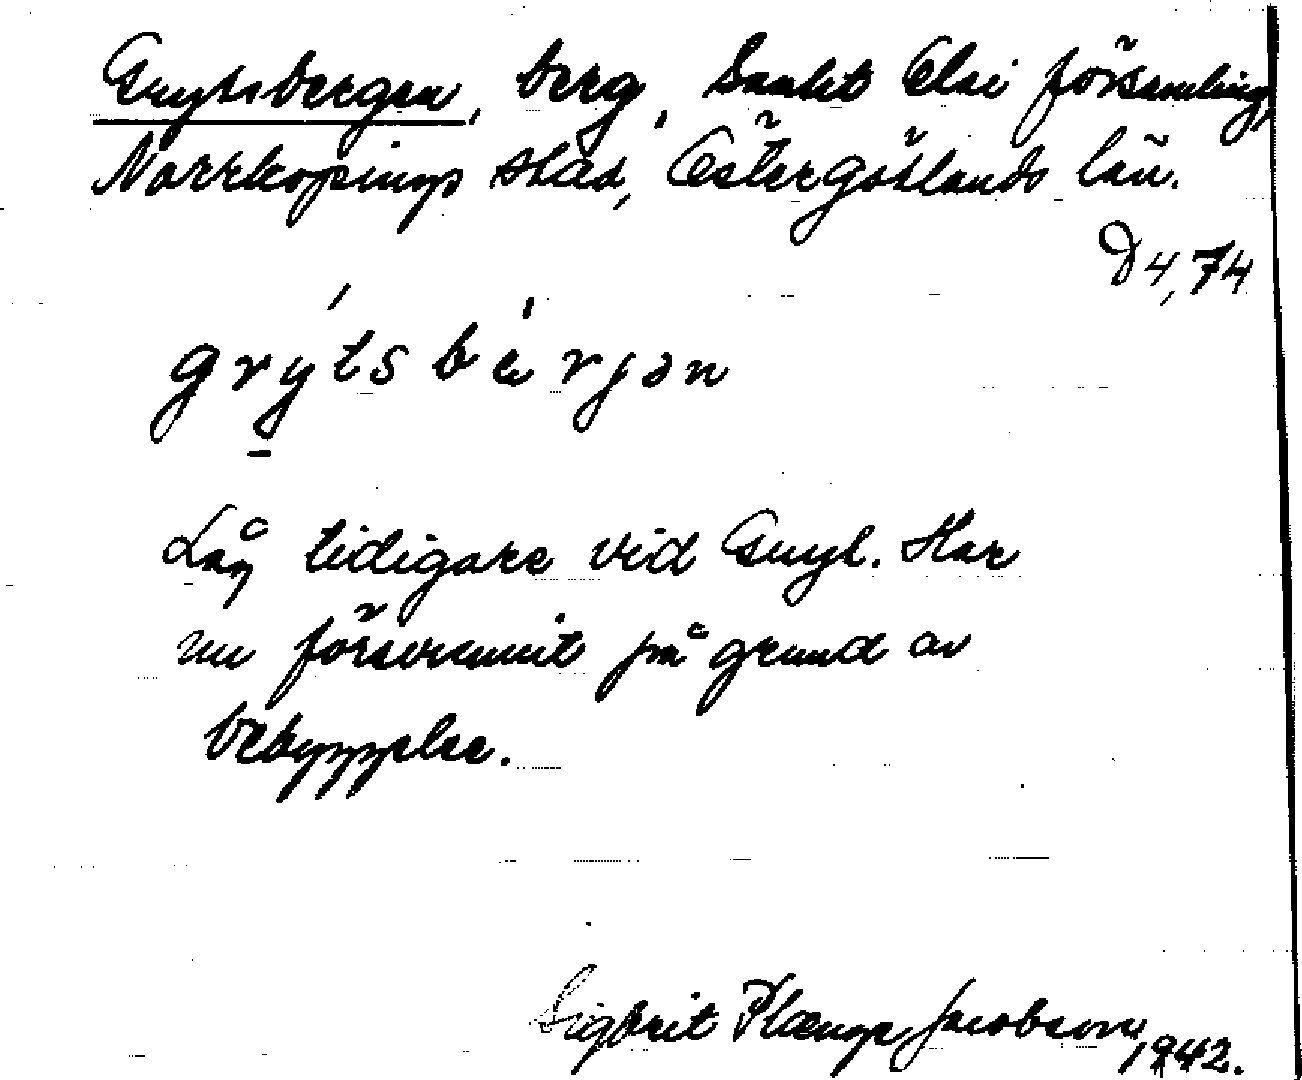 Grytsbergen, berg, Sankt Olai församling,
Norrköpings stad, Östergötlands län.
D4,74
grýtsbé̀rjən
Låg tidigare vid Gryt. Har
nu försvunnit på grund av
bebyggelse.
Sigbrit Plænge Jacobson, 1942.